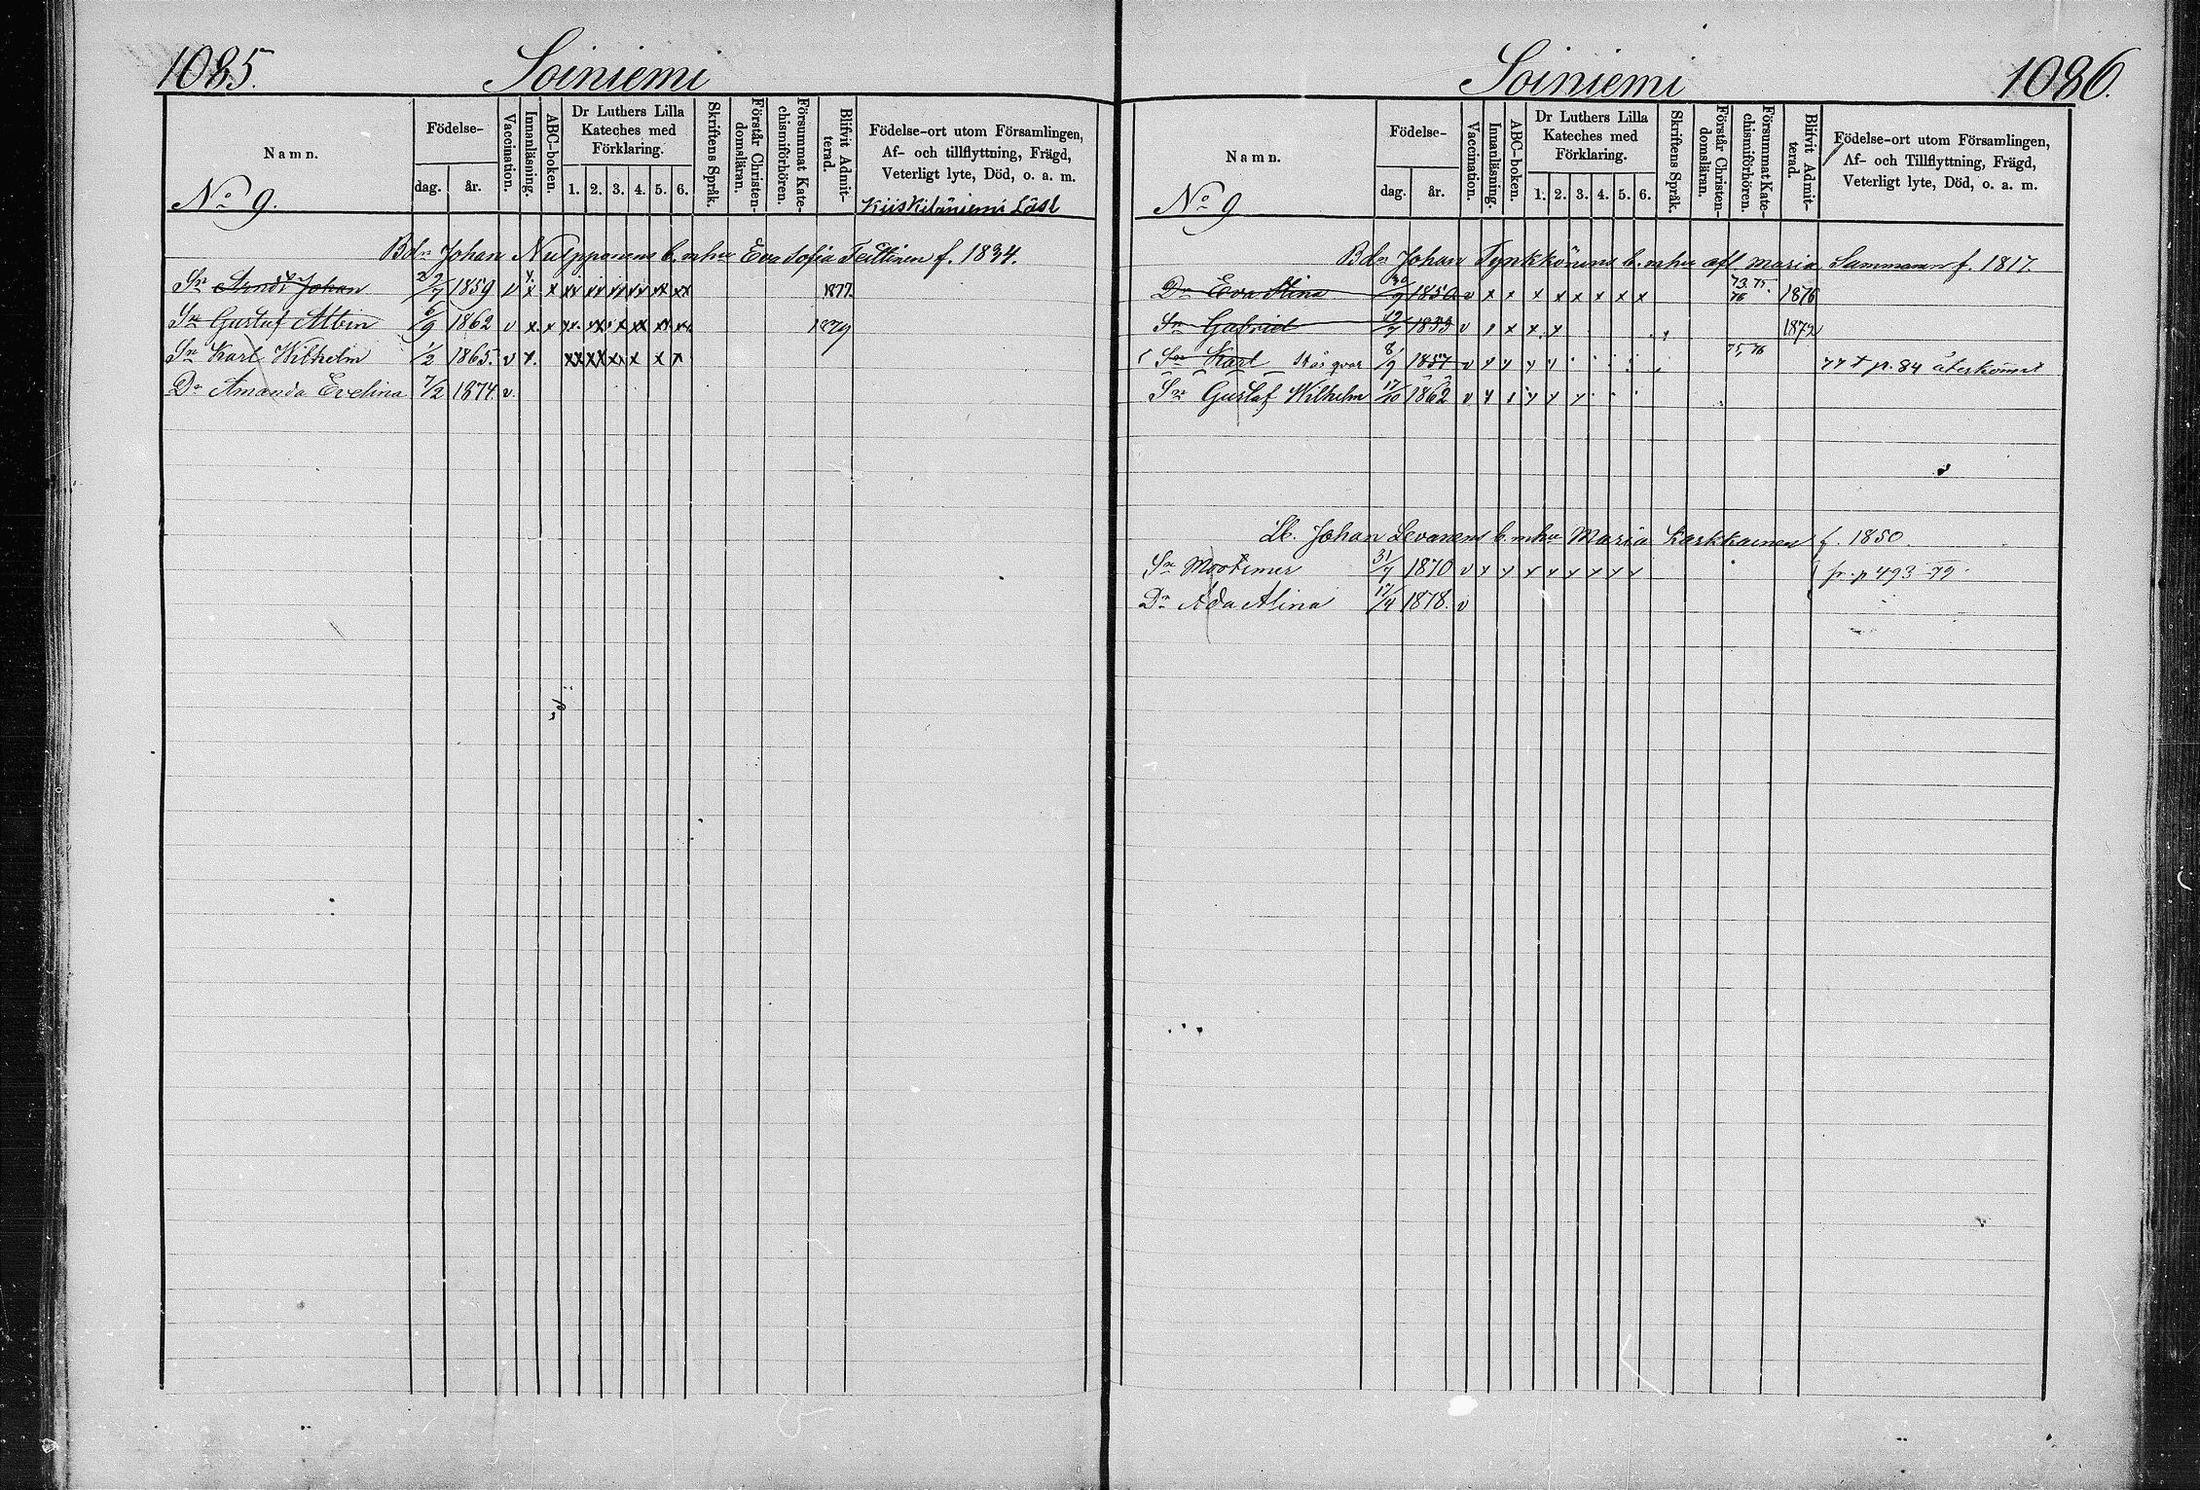 1085.
Soiniemi
Namn.
No 9.
Födelse-
dag. år.
Vaccination.
Innanläsning.
ABC-boken.
Dr Luthers Lilla
Kateches med
Förklaring.
1. 2. 3. 4. 5. 6.
Skriftens Språk.
Förstår Christen-
domsläran.
Försummat Kate-
chismiförhören.
Blifvit Admit-
terad.
Födelse-ort utom Församlingen,
Af- och tillflyttning, Frägd,
Veterligt lyte, Död, o. a. m.
Kiiskiläniemi Läsl
Bdn Johan Nulpponens b. mhu Eva Sofia Teittinen f. 1834.
Sn Arndt Johan 1859 v x x xx xx xx xx xx xx 1877
Sn Gustaf Albin 6/9 1862 v x x xx xx x xx xx xx 1879
Sn Karl Wilhelm 1/2 1865. v x. xx xx xx x x x
Dr Amanda Evelina 7/2 1874. v.
1086.
Soiniemi
Namn.
No 9
Födelse-
dag. år.
Vaccination.
Innanläsning.
ABC-boken.
Dr Luthers Lilla
Kateches med
Förklaring.
1. 2. 3. 4. 5. 6.
Skriftens Språk.
Förstår Christen-
domsläran.
Försummat Kate-
chismiförhören.
Blifvit Admit-
terad.
Födelse-ort utom Församlingen,
Af- och Tillflyttning, Frägd,
Veterligt lyte, Död, o. a. m.
Bdn Johan Tynkkönens b. mhu afl. Maria Sammanen f. 1817.
Dr Eva Stina 1850 v x x x x x x x x 73. 75. 76 1876
Sn Gabriel 1853 v x x x x 1872
Sn Karl 8/9 1857 v x x x x 75, 76 återkommit
Sn Gustaf Wilhelm 17/10 1862 v x x x x x
Lb. Johan Levanens b. mhu Maria Karkkainen f. 1850.
Sn Mortimer 31/7 1870 v x x x x x x x x fr. p 493 -79.
Dr Ada Alina 17/4 1878. v